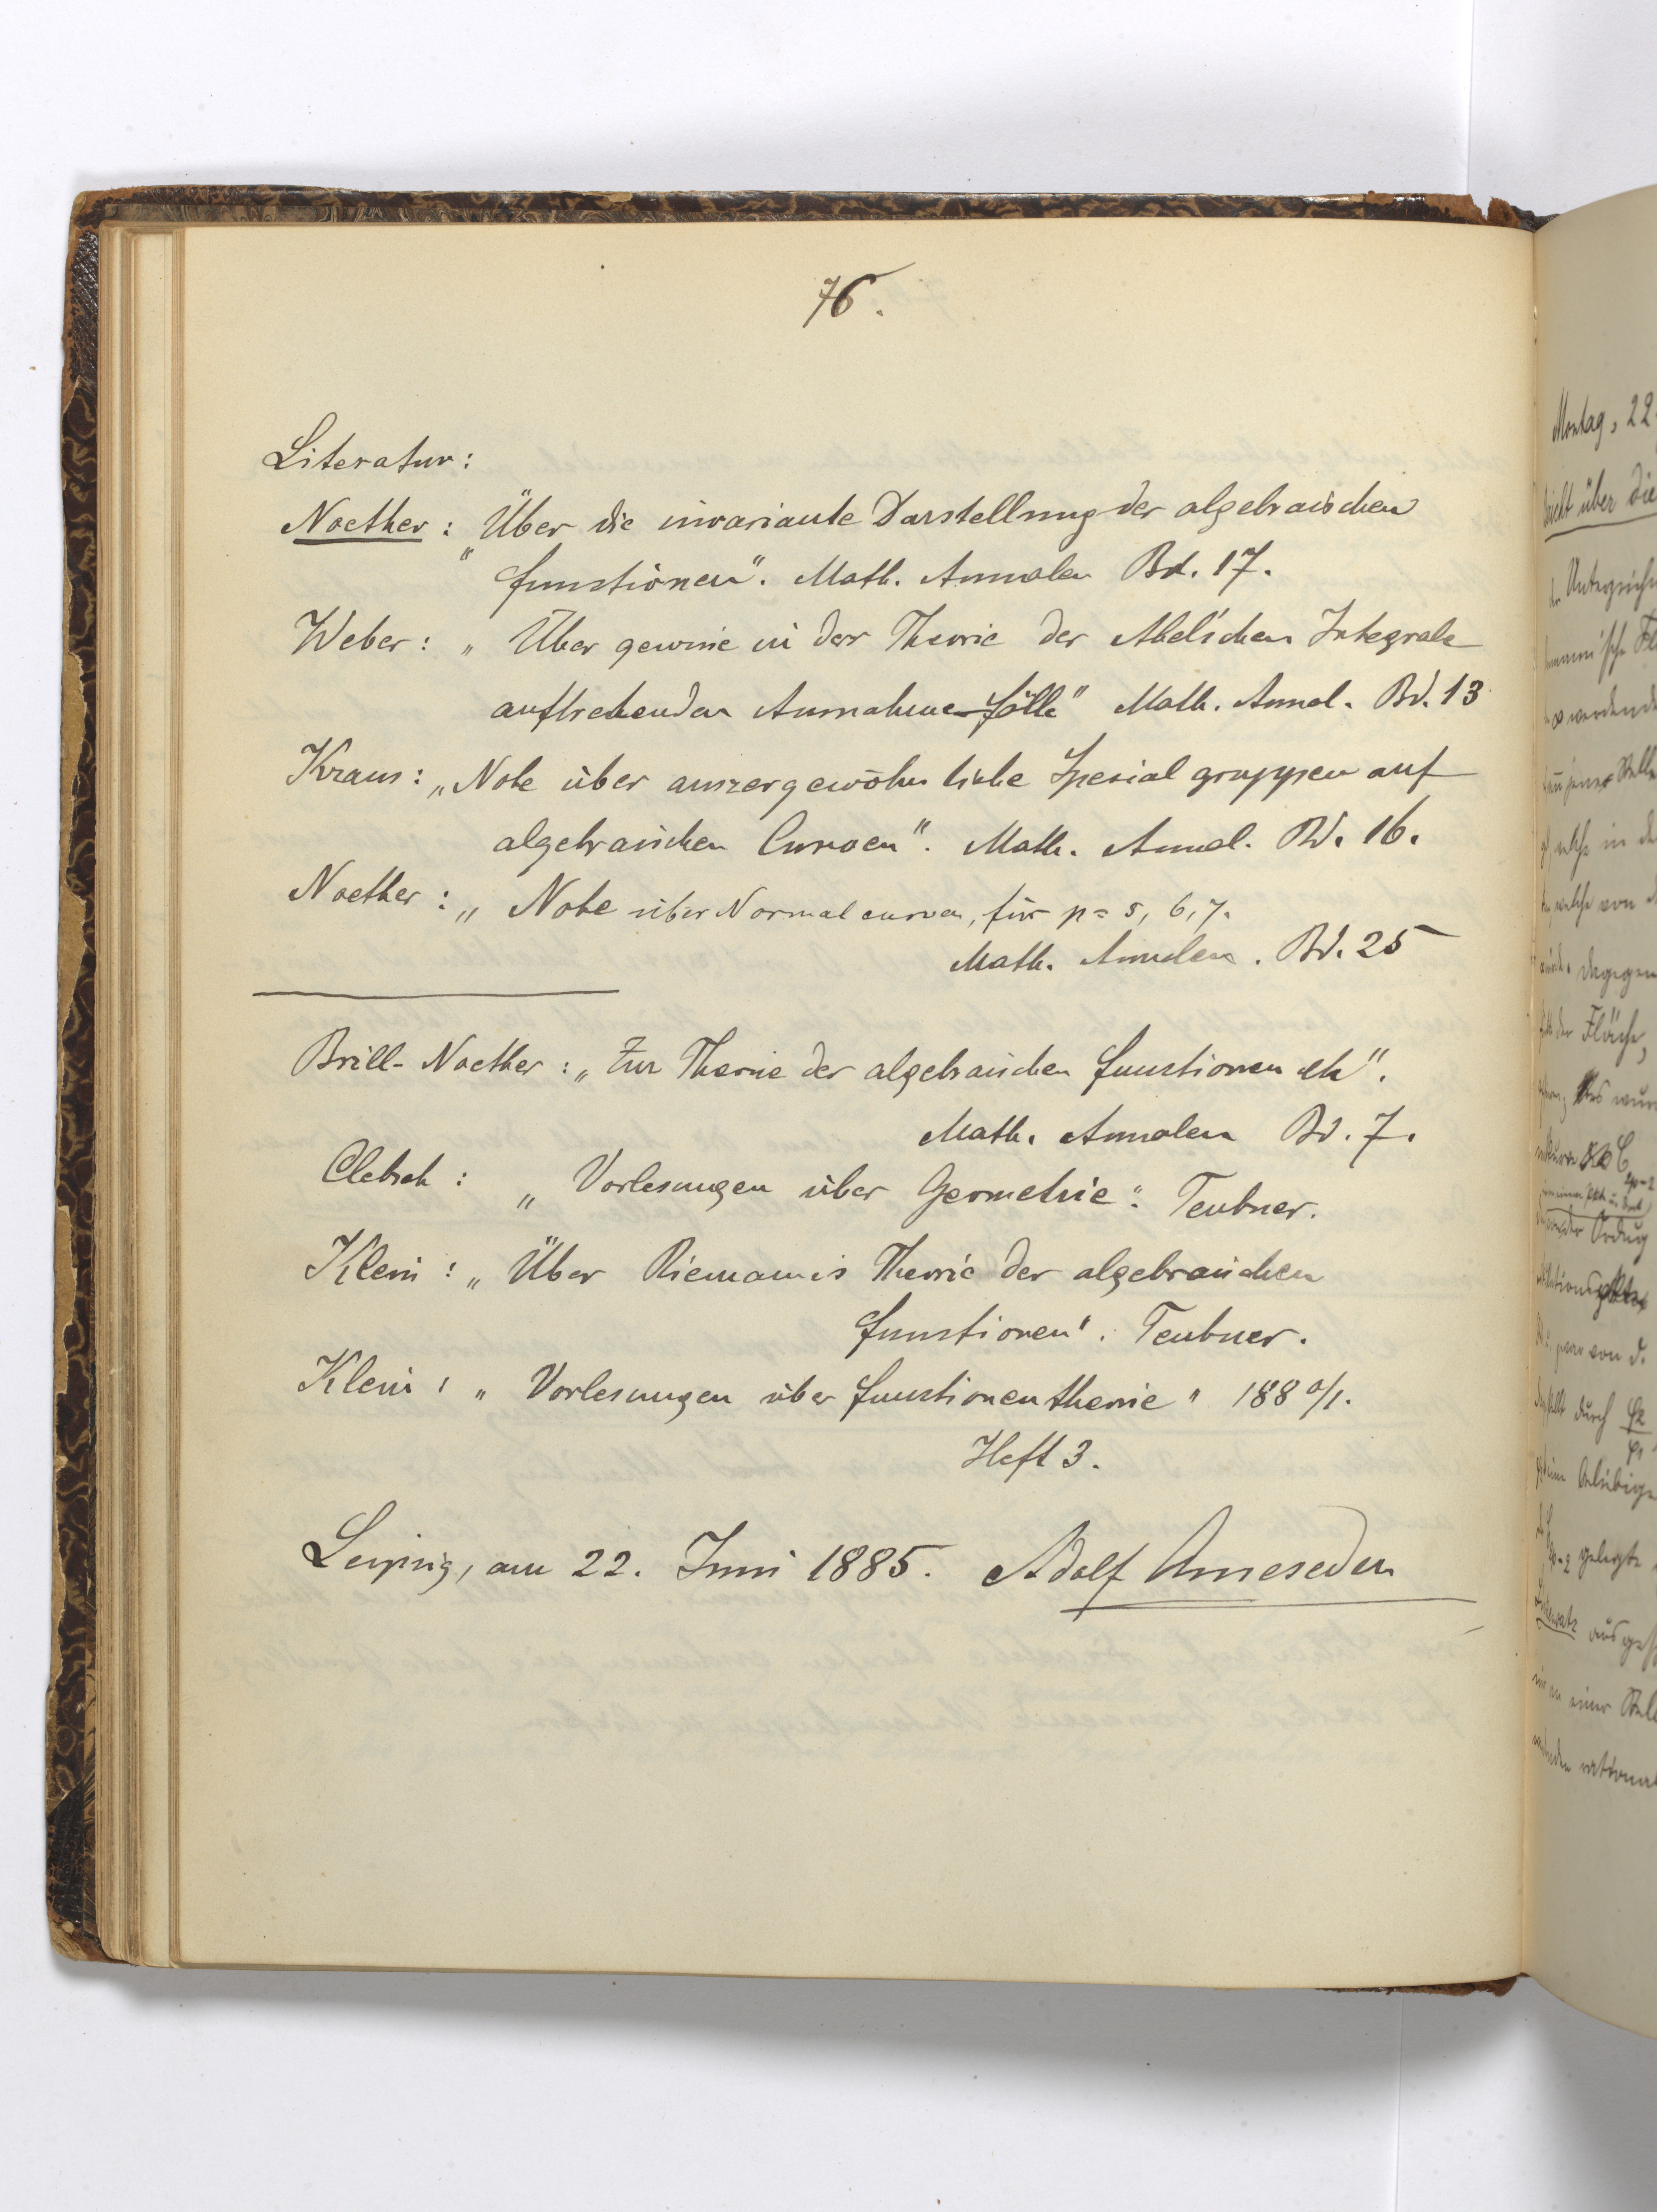 76.
Literatur:
Noether: „Über die invariante Darstellung der algebraischen
Functionen". Math. Annalen Bd. 17.
Weber: „Über gewisse in der Theorie der Abel'schen Integrale
auftretenden Ausnahme-Fälle" Math. Annal. Bd. 13
Kraus: „Note über auszergewöhnliche Spezialgruppen auf
algebraischen Curven". Math. Annal. Bd. 16.
Noether: „Note über Normalcurven, für p = 5, 6, 7.
Math. Annalen. Bd. 25
Brill-Noether: „Zur Theorie der algebraischen Functionen etc".
Math. Annalen Bd. 7.
Clebsch: „Vorlesungen über Geometrie". Teubner.
Klein: „Über Riemann's Theorie der algebraischen
Functionen". Teubner.
Klein: „Vorlesungen über Functionentheorie" 1880/1.
Heft 3.
Leipzig, am 22. Juni 1885. Adolf Ameseder
Montag, 22
über die
in der
welche von
dagegen
der Fläche,
von d.
durch
gelegte
an einer